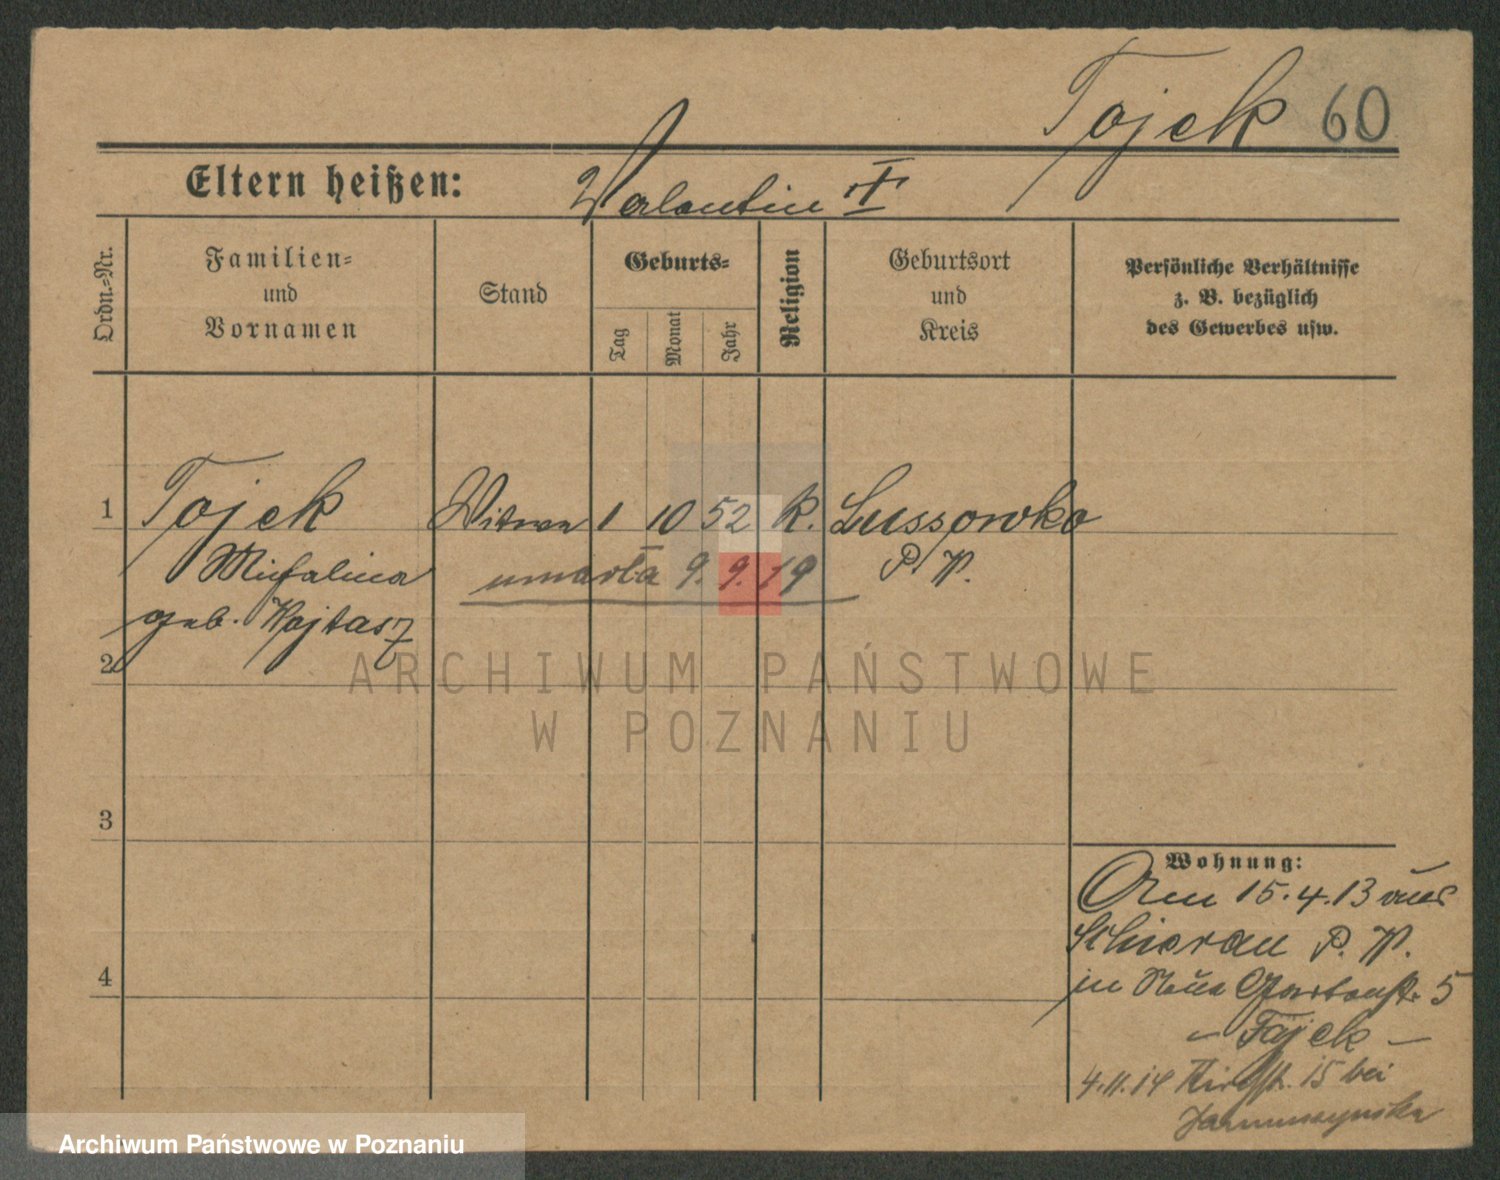 Tojek 60
Eltern heißen: Valentin †
Ordn.-Nr.
Familien-
und
Vornamen
Stand
Geburts-
Tag
Monat
Jahr
Religion
Geburtsort
und
Kreis
Persönliche Verhältnisse
z. B. bezüglich
des Gewerbes usw.
1 Tojek Witwe 1 10 52 k. Lussowko
Michalina umarła 9. 9. 19 P. W.
geb. Wojtasz
2
ARCHIWUM PAŃSTWOWE
W POZNANIU
3
Wohnung:
Am 15.4.13 aus
P. W.
4
in Neue Gartenstr. 5
- Tojek -
4.11.14 Kirchstr. 15 bei
Archiwum Państwowe w Poznaniu